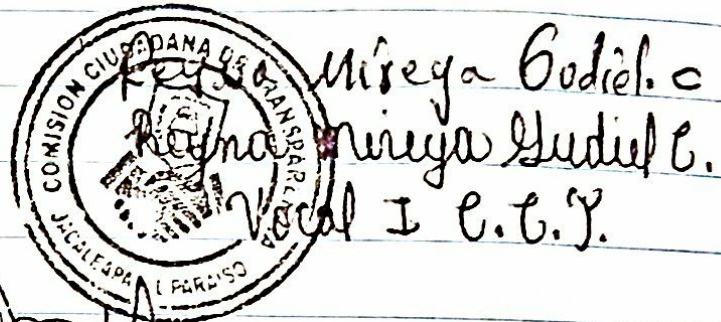 COMISION CIUDADANA DE TRANSPARENCIA
JACALEAPA EL PARAISO
Reyna Mireya Godiel. c
Reyna Mireya Gudiel C.
Vocal I C.C.T.